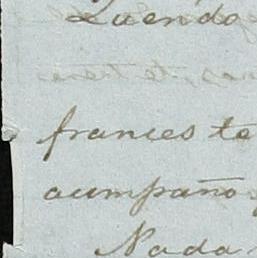 Quendo
frances te
acumpaño
Nada